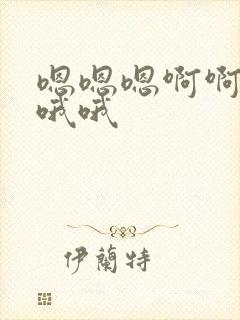 嗯嗯嗯啊啊
哦哦
伊蘭特